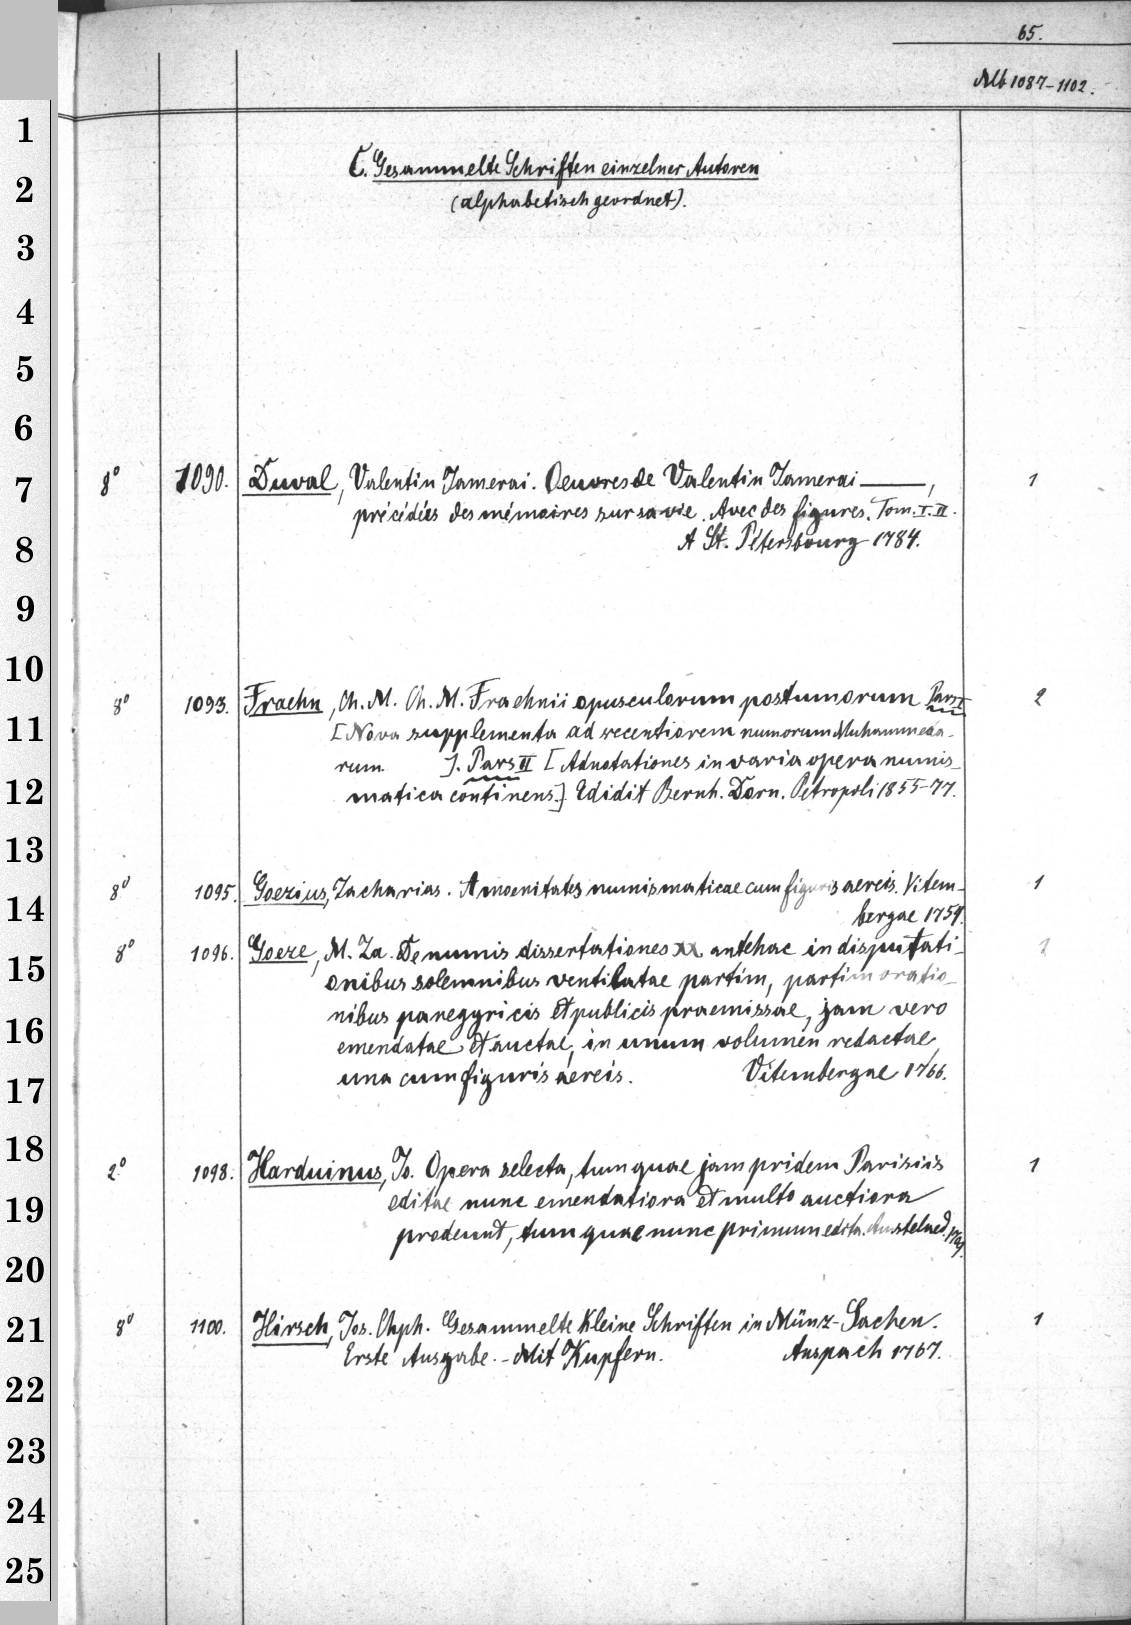 65.
Alb 1087-1102.
1
2
3
4
5
6
7
8
9
10
11
12
13
14
15
16
17
18
19
20
21
22
23
24
25
C. Gesammelte Schriften einzelner Autoren
(alphabetisch geordnet).
8° 1090. Duval, Valentin Jamerai. Oeuvres de Valentin Jamerai ———, 1
précédées des mémoires sur sa vie. Avec des figures. Tom. I. II.
A St. Pétersbourg 1784.
8° 1093. Fraehn, Ch. M. Ch. M. Fraehnii opusculorum postumorum Pars I 2
[Nova supplementa ad recentiorem numorum Muhammeda-
rum ]. Pars II [Adnotationes in varia opera numis-
matica continens.] Edidit Bernh. Dorn. Petropoli 1855-77.
8° 1095. Goezius, Zacharias. Amoenitates numismaticae cum figuris aereis. Vitem- 1
bergae 1754.
8° 1096. Goeze, M. Za. De numis dissertationes XX antehac in disputati- 1
onibus solemnibus ventilatae partim, partim oratio-
nibus panegyricis et publicis praemissae, jam vero
emendatae et auctae, in unum volumen redactae
una cum figuris aereis. Vitembergae 1766.
2° 1098. Harduinus, Jo. Opera selecta, tum quae jam pridem Parisiis 1
editae nunc emendatiora et multo auctiora
prodeunt, tum quae nunc primum edita. Amstelaed. 1709.
8° 1100. Hirsch, Jos. Chph. Gesammelte Kleine Schriften in Münz-Sachen. 1
Erste Ausgabe. - Mit Kupfern. Anspach 1767.